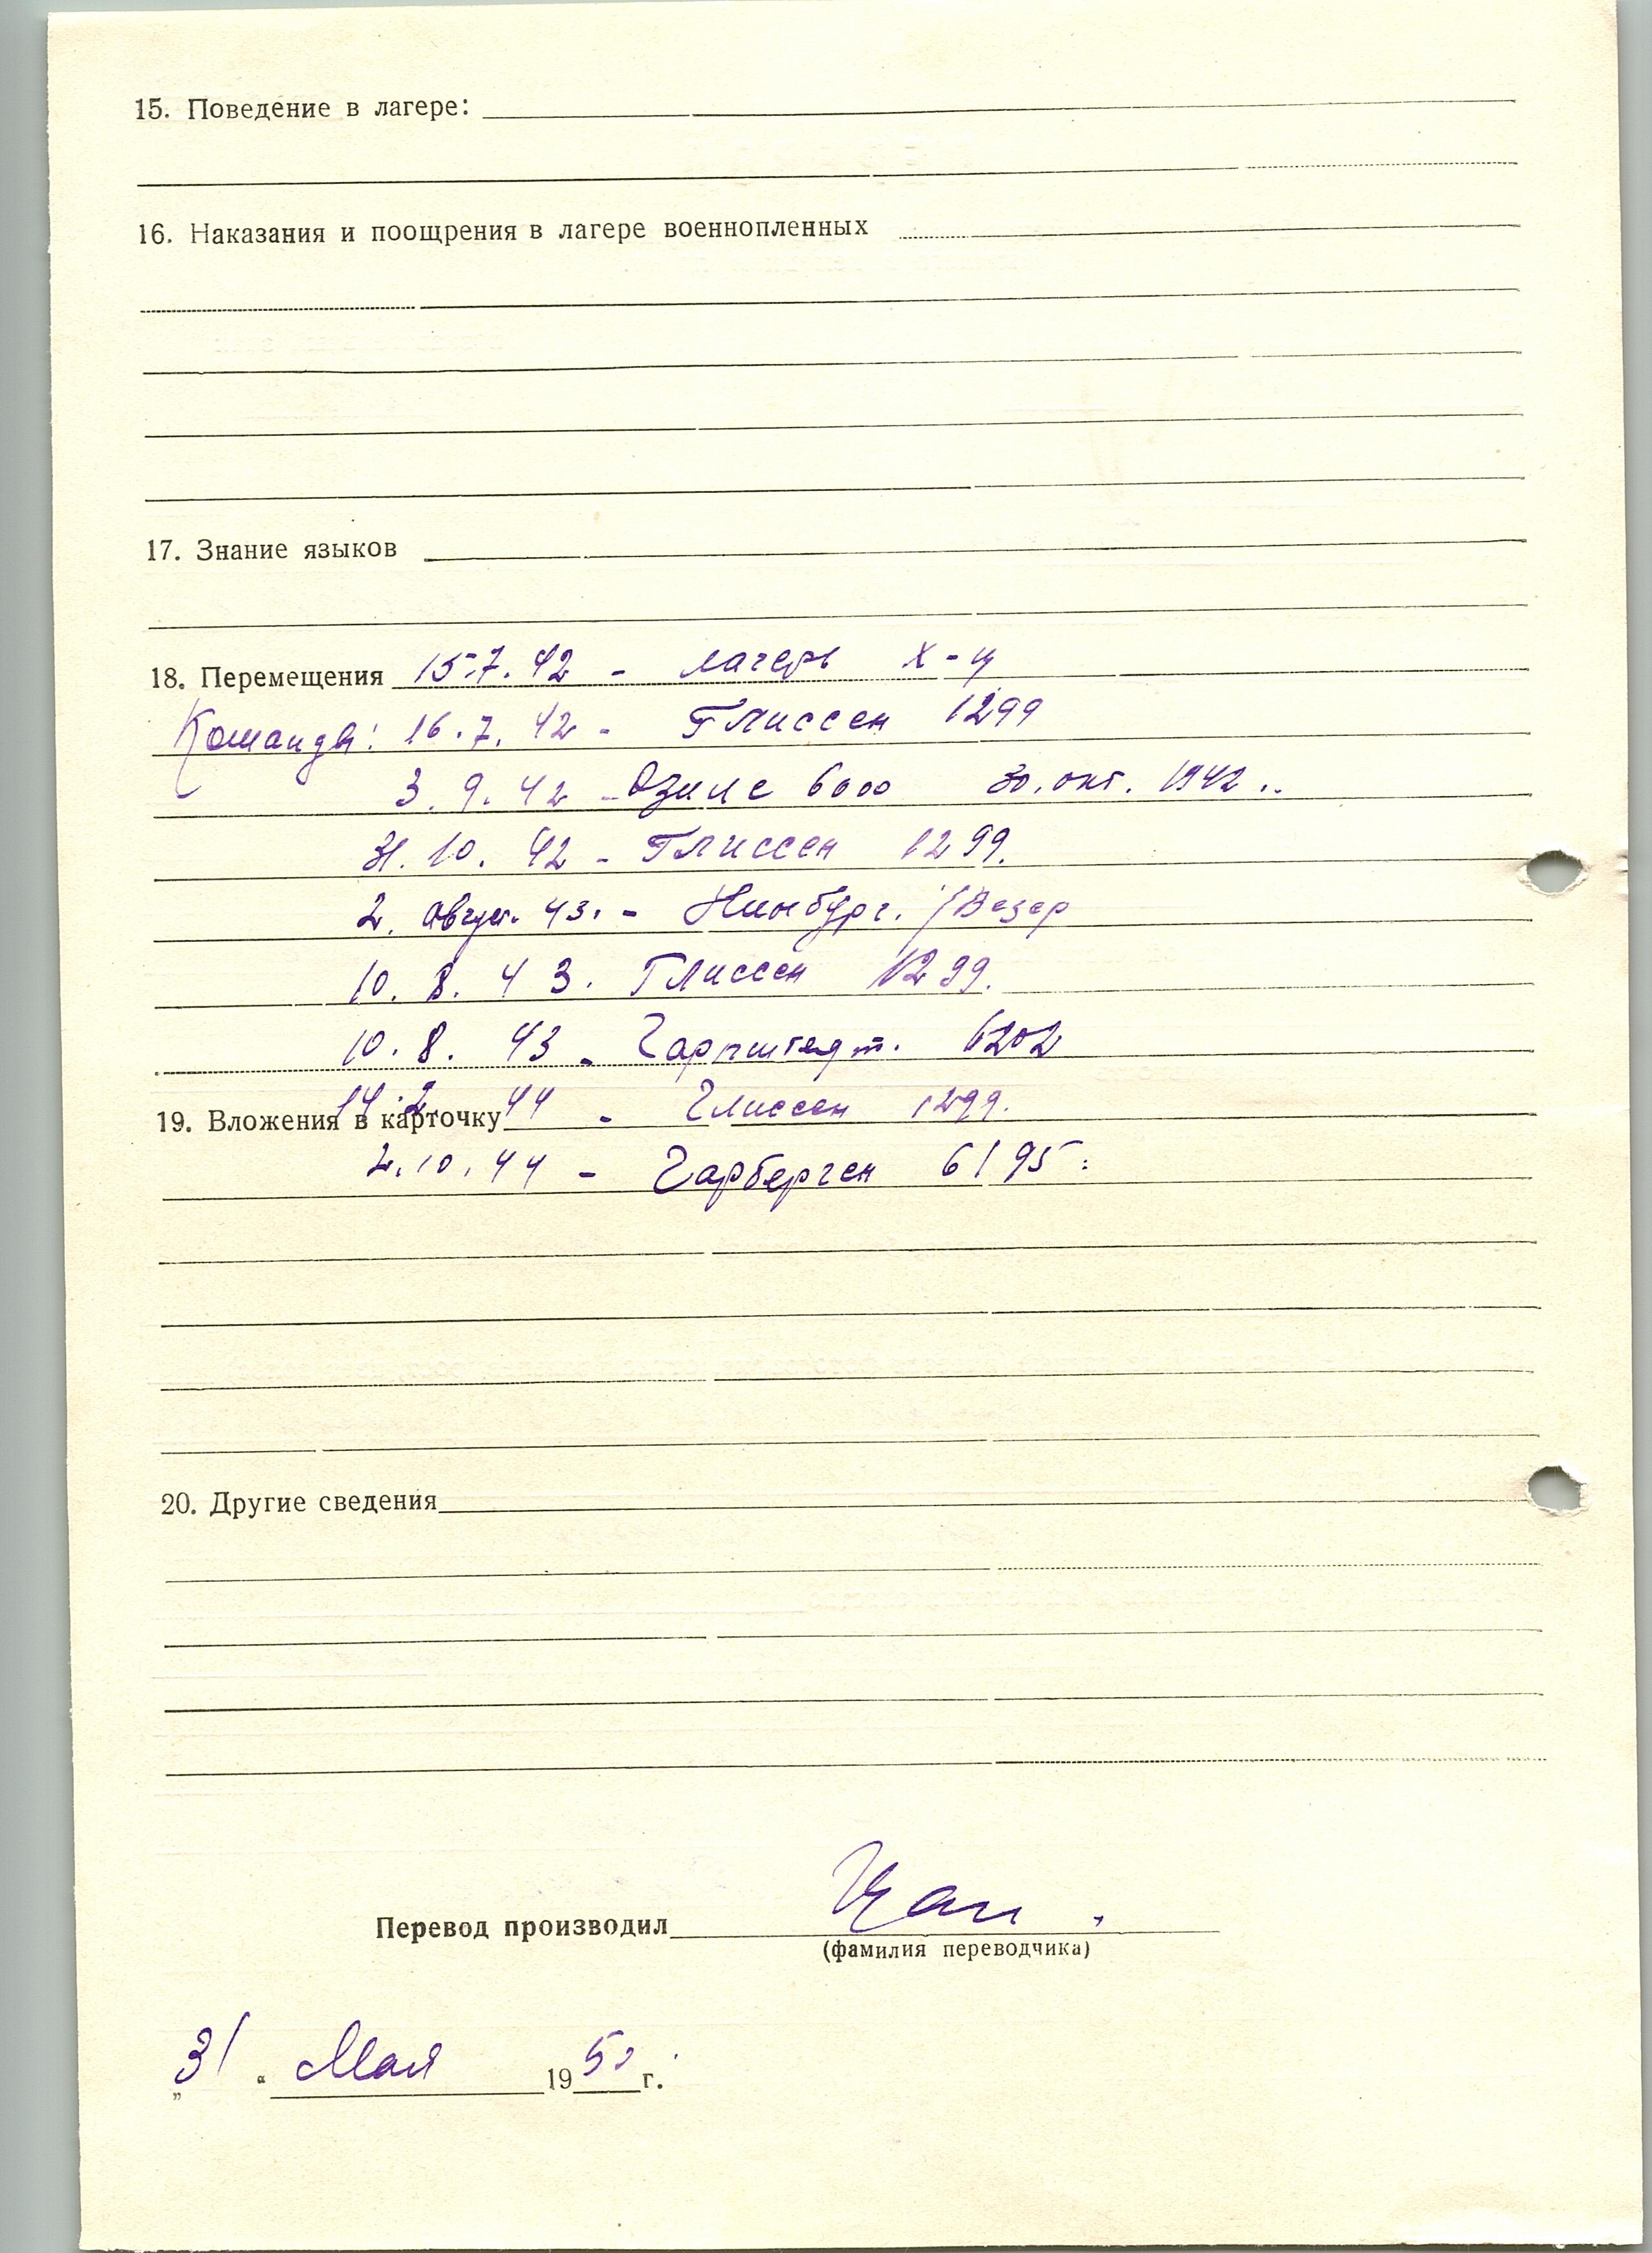 15. Поведение в лагере:
16. Наказания и поощрения в лагере военнопленных
17. Знание языков
18. Перемещения 15.7.42 - лагерь X-ц
Команды: 16.7.42 - Глиссен 1299
3.9.42 - Озиле 6000 30.окт. 1942..
31.10.42 - Глиссен 1299.
2. август. 43. - Нинбург. /Везер
10.8.43. Глиссен 1299.
10.8.43 - Гарпштедт. 6202
14.2.44 - Глиссен 1299.
19. Вложения в карточку
2.10.44 - Гарберген 6195.
20. Другие сведения
Перевод производил
(фамилия переводчика)
„31“ Мая 195 г.